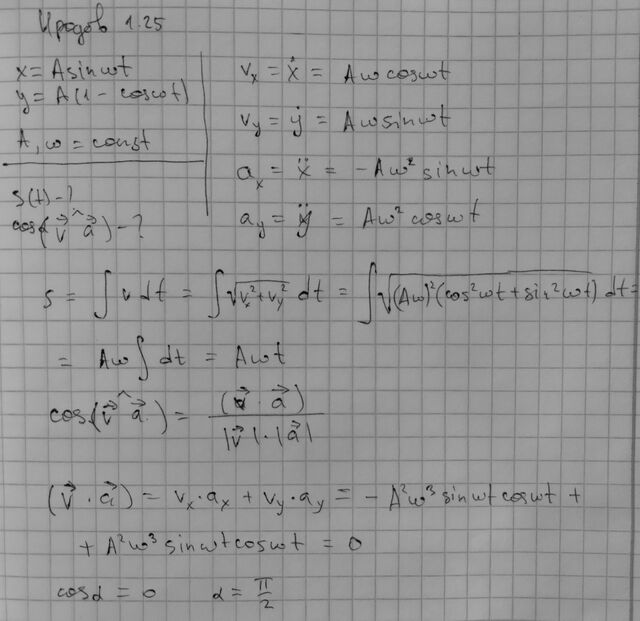 Иродов 1.25
x = A sin ωt
y = A(1 - cos ωt)
A, ω = const
s(t) - ?
cos(v⃗ ^ a⃗) - ?
v_x = ẋ = Aω cos ωt
v_y = ẏ = Aω sin ωt
a_x = ẍ = -Aω² sin ωt
a_y = ÿ = Aω² cos ωt
s = ∫ v dt = ∫ √(v_x² + v_y²) dt = ∫ √((Aω)²(cos² ωt + sin² ωt)) dt =
= Aω ∫ dt = Aωt
cos(v⃗ ^ a⃗) = (v⃗ · a⃗) / |v⃗| · |a⃗|
(v⃗ · a⃗) = v_x · a_x + v_y · a_y = - A²ω³ sin ωt cos ωt +
+ A²ω³ sin ωt cos ωt = 0
cos α = 0 α = π/2